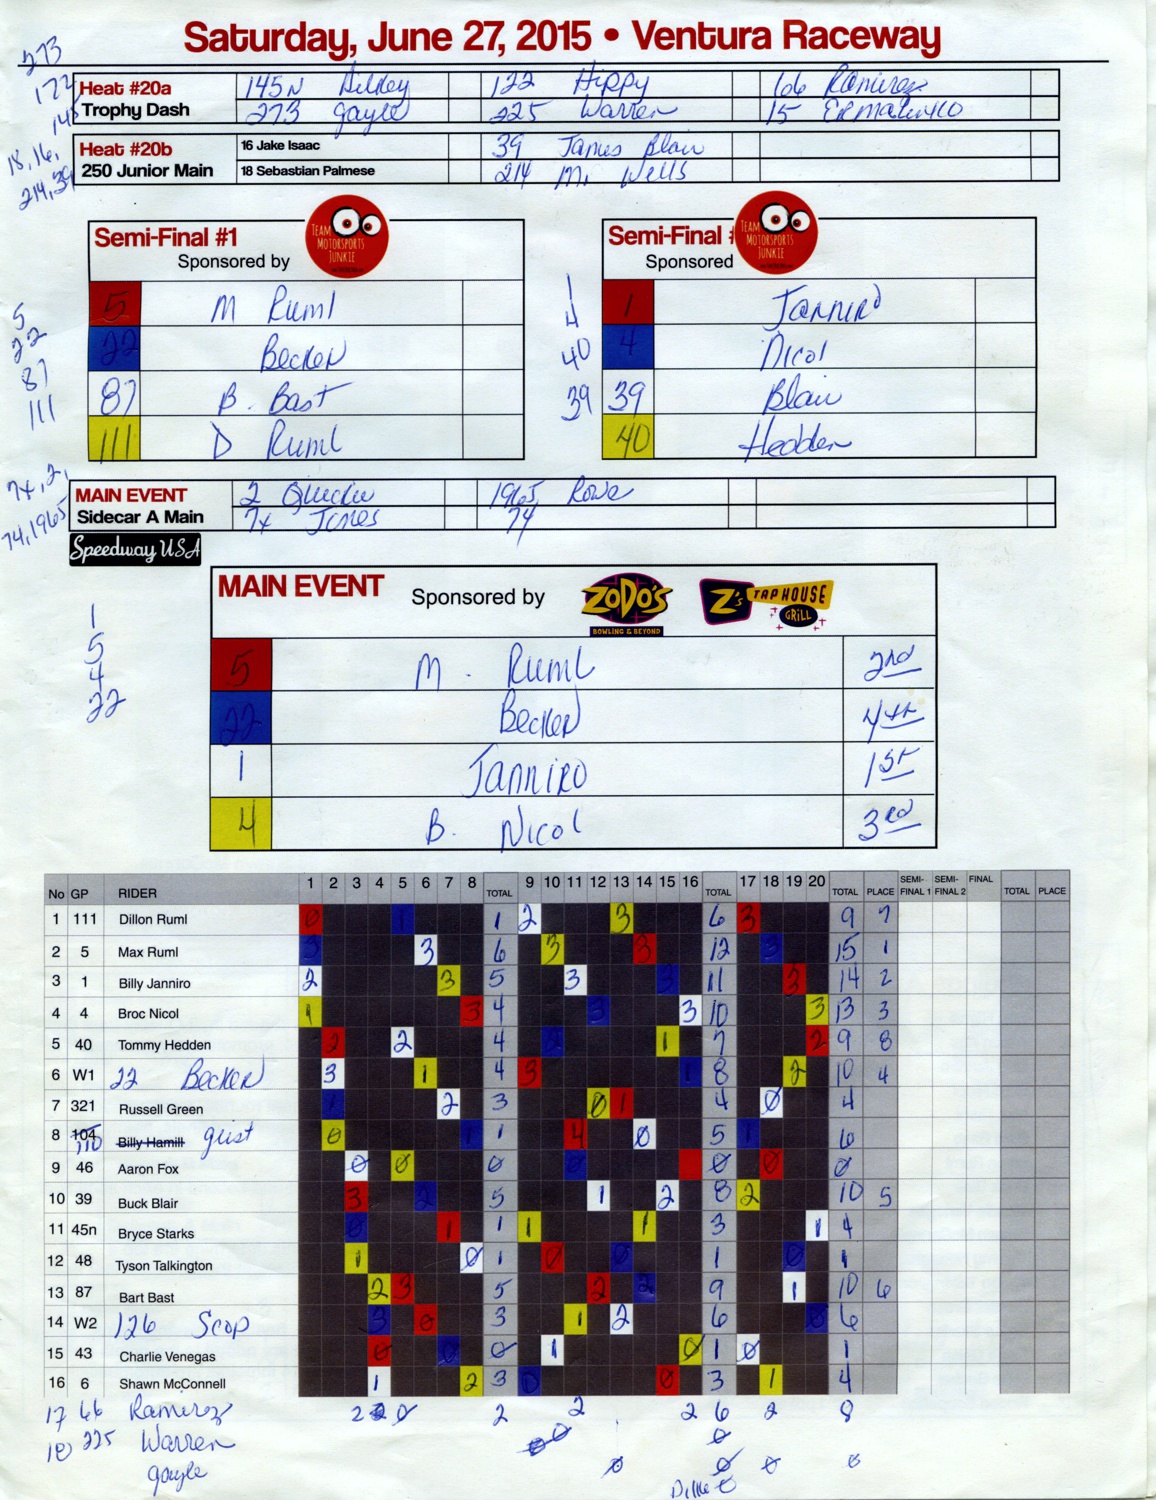 Saturday, June 27, 2015 • Ventura Raceway
273
122
145
Heat #20a 145N Dilkey 122 Hippy 66 Ramirez
Trophy Dash 273 gayle 225 Warren 15
18, 16,
214, 39
Heat #20b 16 Jake Isaac 39 James Blair
250 Junior Main 18 Sebastian Palmese 214 M. Wells
Semi-Final #1
Sponsored by
TEAM MOTORSPORTS JUNKIE
5 M Ruml
22 Becker
87 B. Bast
111 D Ruml
5
22
87
111
Semi-Final #
Sponsored
TEAM MOTORSPORTS JUNKIE
1 Janniro
4 Nicol
39 Blair
40 Hedden
1
4
40
39
7x, 2,
74, 1965
MAIN EVENT 2 Quickie 1965 Rowe
Sidecar A Main 7x Jones 74
Speedway USA
MAIN EVENT Sponsored by ZODO'S BOWLING & BEYOND Z's TAP HOUSE GRILL
5 M. Ruml 2nd
22 Becker 4th
1 Janniro 1st
4 B. Nicol 3rd
1
5
4
22
No GP RIDER 1 2 3 4 5 6 7 8 TOTAL 9 10 11 12 13 14 15 16 TOTAL 17 18 19 20 TOTAL PLACE SEMI-FINAL 1 SEMI-FINAL 2 FINAL TOTAL PLACE
1 111 Dillon Ruml 0 1 1 2 3 6 3 9 7
2 5 Max Ruml 3 3 6 3 3 12 3 15 1
3 1 Billy Janniro 2 3 5 3 3 11 3 14 2
4 4 Broc Nicol 1 3 4 3 3 10 3 13 3
5 40 Tommy Hedden 2 2 4 2 1 7 2 9 8
6 W1 22 Becker 3 1 4 3 1 8 2 10 4
7 321 Russell Green 1 2 3 0 1 4 0 4
8 104 110 Billy Hamill geist 0 1 1 4 0 5 1 6
9 46 Aaron Fox 0 0 0 0 0 0 0
10 39 Buck Blair 3 2 5 1 2 8 2 10 5
11 45n Bryce Starks 0 1 1 1 1 3 1 4
12 48 Tyson Talkington 1 0 1 0 0 1 0 1
13 87 Bart Bast 2 3 5 2 2 9 1 10 6
14 W2 126 Scop 3 0 3 1 2 6 0 6
15 43 Charlie Venegas 0 0 0 1 0 1 0 1
16 6 Shawn McConnell 1 2 3 0 0 3 1 4
17 66 Ramirez 2 2 0 2 2 2 6 2 8
18 225 Warren 0 0 0
gayle 0 0 0 0
0